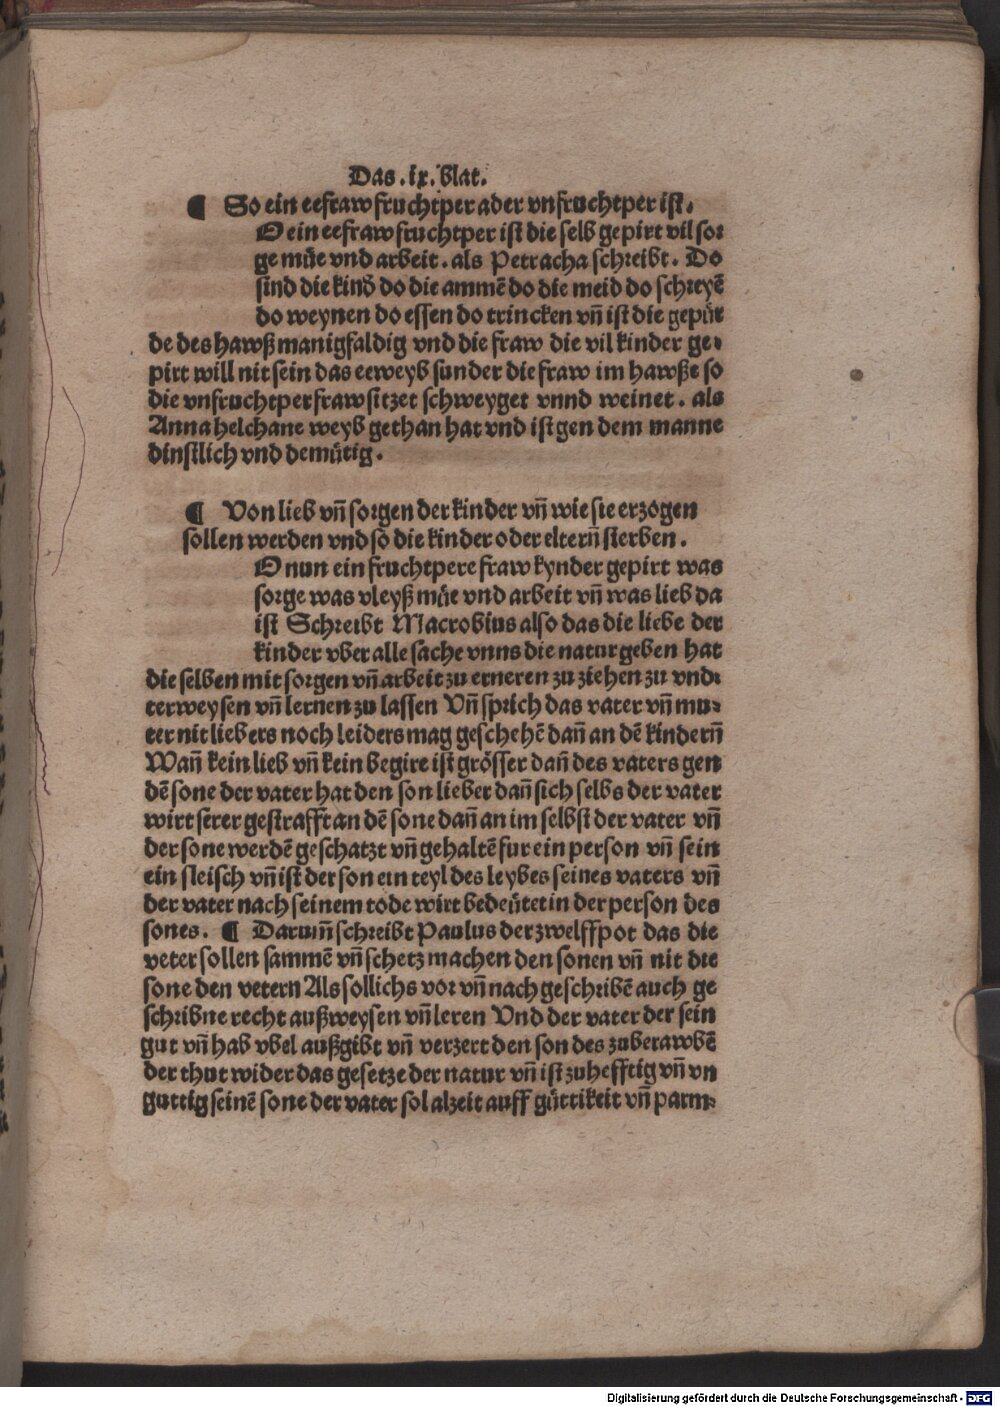 Das .ix. blat.
¶ So ein eefraw fruchtper ader vnfruchtper ist.
O ein eefraw fruchtper ist die selb gepirt vil sor
ge müe vnd arbeit. als Petracha schreibt. Do
sind die kind do die ammē do die meid do schreyē
do weynen do essen do trincken vn̄ ist die gepür
de des hawß manigfaldig vnd die fraw die vil kinder ge-
pirt will nit sein das eeweyb sunder die fraw im hawße so
die vnfruchtper fraw sitzet schweyget vnnd weinet. als
Anna helchane weyb gethan hat vnd ist gen dem manne
dinstlich vnd demütig.
¶ Von lieb vn̄ sorgen der kinder vn̄ wie sie erzogen
sollen werden vnd so die kinder oder eltern̄ sterben.
O nun ein fruchtpere fraw kynder gepirt was
sorge was vleyß müe vnd arbeit vn̄ was lieb da
ist Schreibt Macrobius also das die liebe der
kinder vber alle sache vnns die natur geben hat
die selben mit sorgen vn̄ arbeit zu erneren zu ziehen zu vnd-
terweysen vn̄ lernen zu lassen Vn̄ sprich das vater vn̄ mu-
ter nit liebers noch leiders mag geschehē dan̄ an dē kindern̄
Wan̄ kein lieb vn̄ kein begire ist grösser dan̄ des vaters gen
dē sone der vater hat den son lieber dan̄ sich selbs der vater
wirt serer gestrafft an dē sone dan̄ an im selbst der vater vn̄
der sone werdē geschatzt vn̄ gehaltē fur ein person vn̄ sein
ein fleisch vn̄ ist der son ein teyl des leybes seines vaters vn̄
der vater nach seinem tode wirt bedeütet in der person des
sones. ¶ Darum̄ schreibt Paulus der zwelffpot das die
veter sollen sammē vn̄ schetz machen den sonen vn̄ nit die
sone den vetern Als sollichs vor vn̄ nach geschribē auch ge
schribne recht außweysen vn̄ leren Vnd der vater der sein
gut vn̄ hab vbel außgibt vn̄ verzert den son des zuberawbē
der thut wider das gesetze der natur vn̄ ist zu hefftig vn̄ vn
guttig seinē sone der vater sol alzeit auff güttikeit vn̄ parm-
Digitalisierung gefördert durch die Deutsche Forschungsgemeinschaft - DFG